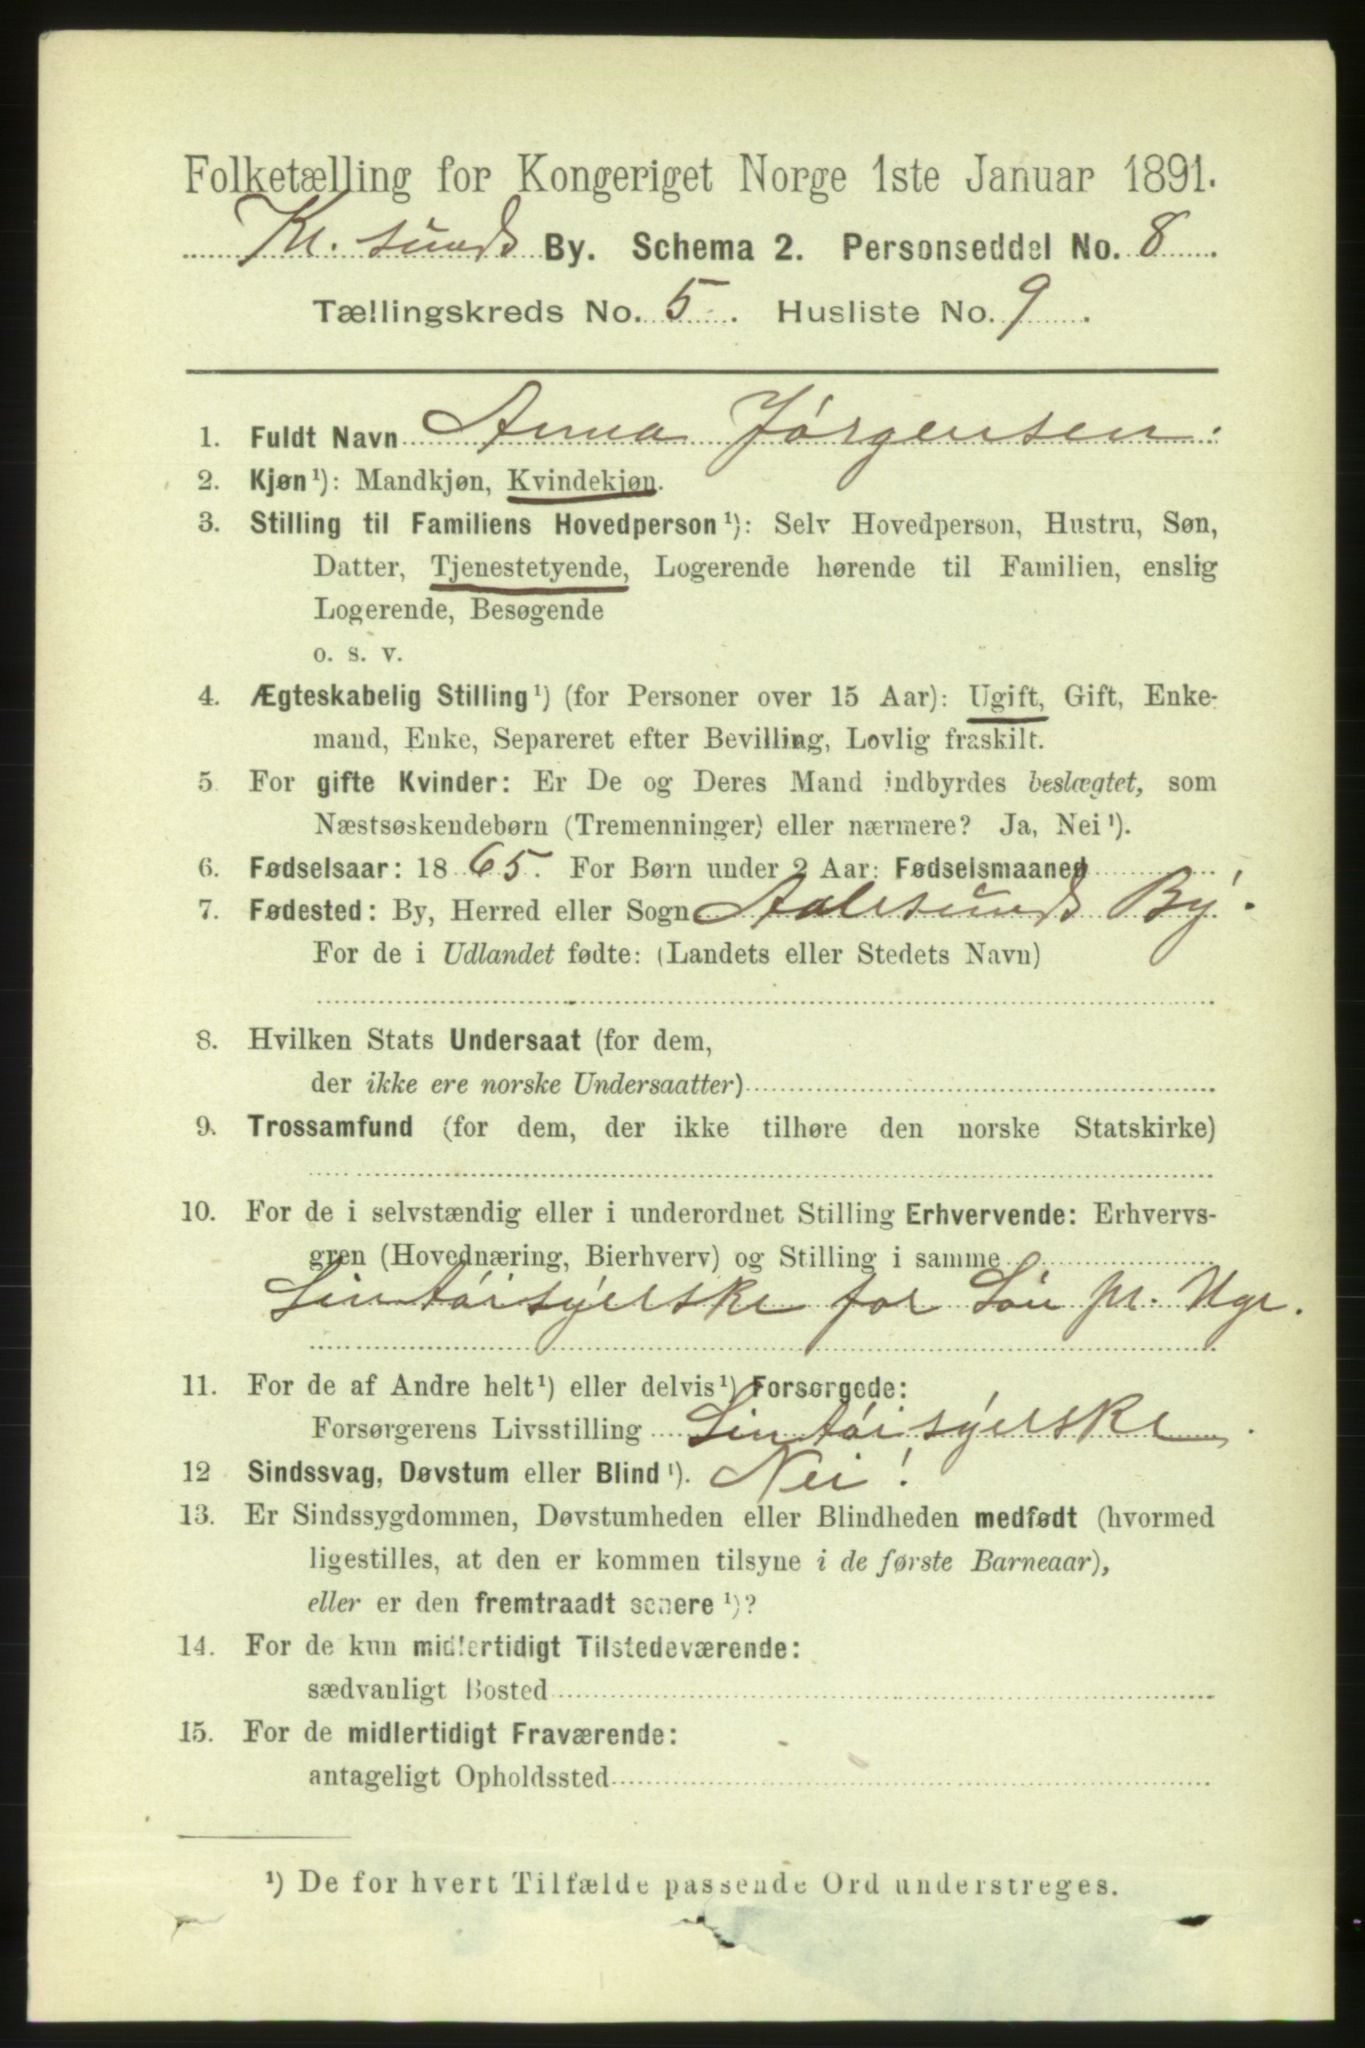 Folketælling for Kongeriget Norge 1ste Januar 1891.
Kr. sunds By. Schema 2. Personseddel No. 8
Tællingskreds No. 5. Husliste No. 9
1. Fuldt Navn Anna Jørgensen.
2. Kjøn¹): Mandkjøn, Kvindekjøn.
3. Stilling til Familiens Hovedperson¹): Selv Hovedperson, Hustru, Søn,
Datter, Tjenestetyende, Logerende hørende til Familien, enslig
Logerende, Besøgende
o. s. v.
4. Ægteskabelig Stilling¹) (for Personer over 15 Aar): Ugift, Gift, Enke-
mand, Enke, Separeret efter Bevilling, Lovlig fraskilt.
5. For gifte Kvinder: Er De og Deres Mand indbyrdes beslægtet, som
Næstsøskendebørn (Tremenninger) eller nærmere? Ja, Nei¹).
6. Fødselsaar: 1865. For Børn under 2 Aar: Fødselsmaaned
7. Fødested: By, Herred eller Sogn Aalesunds By.
For de i Udlandet fødte: (Landets eller Stedets Navn)
8. Hvilken Stats Undersaat (for dem,
der ikke ere norske Undersaatter)
9. Trossamfund (for dem, der ikke tilhøre den norske Statskirke)
10. For de i selvstændig eller i underordnet Stilling Erhvervende: Erhvervs-
gren (Hovednæring, Bierhverv) og Stilling i samme
Lintøisyerske for Løn pr. Uge.
11. For de af Andre helt¹) eller delvis¹) Forsørgede:
Forsørgerens Livsstilling Lintøisyerske.
12 Sindssvag, Døvstum eller Blind¹). Nei!
13. Er Sindssygdommen, Døvstumheden eller Blindheden medfødt (hvormed
ligestilles, at den er kommen tilsyne i de første Barneaar),
eller er den fremtraadt senere¹)?
14. For de kun midlertidigt Tilstedeværende:
sædvanligt Bosted
15. For de midlertidigt Fraværende:
antageligt Opholdssted
¹) De for hvert Tilfælde passende Ord understreges.